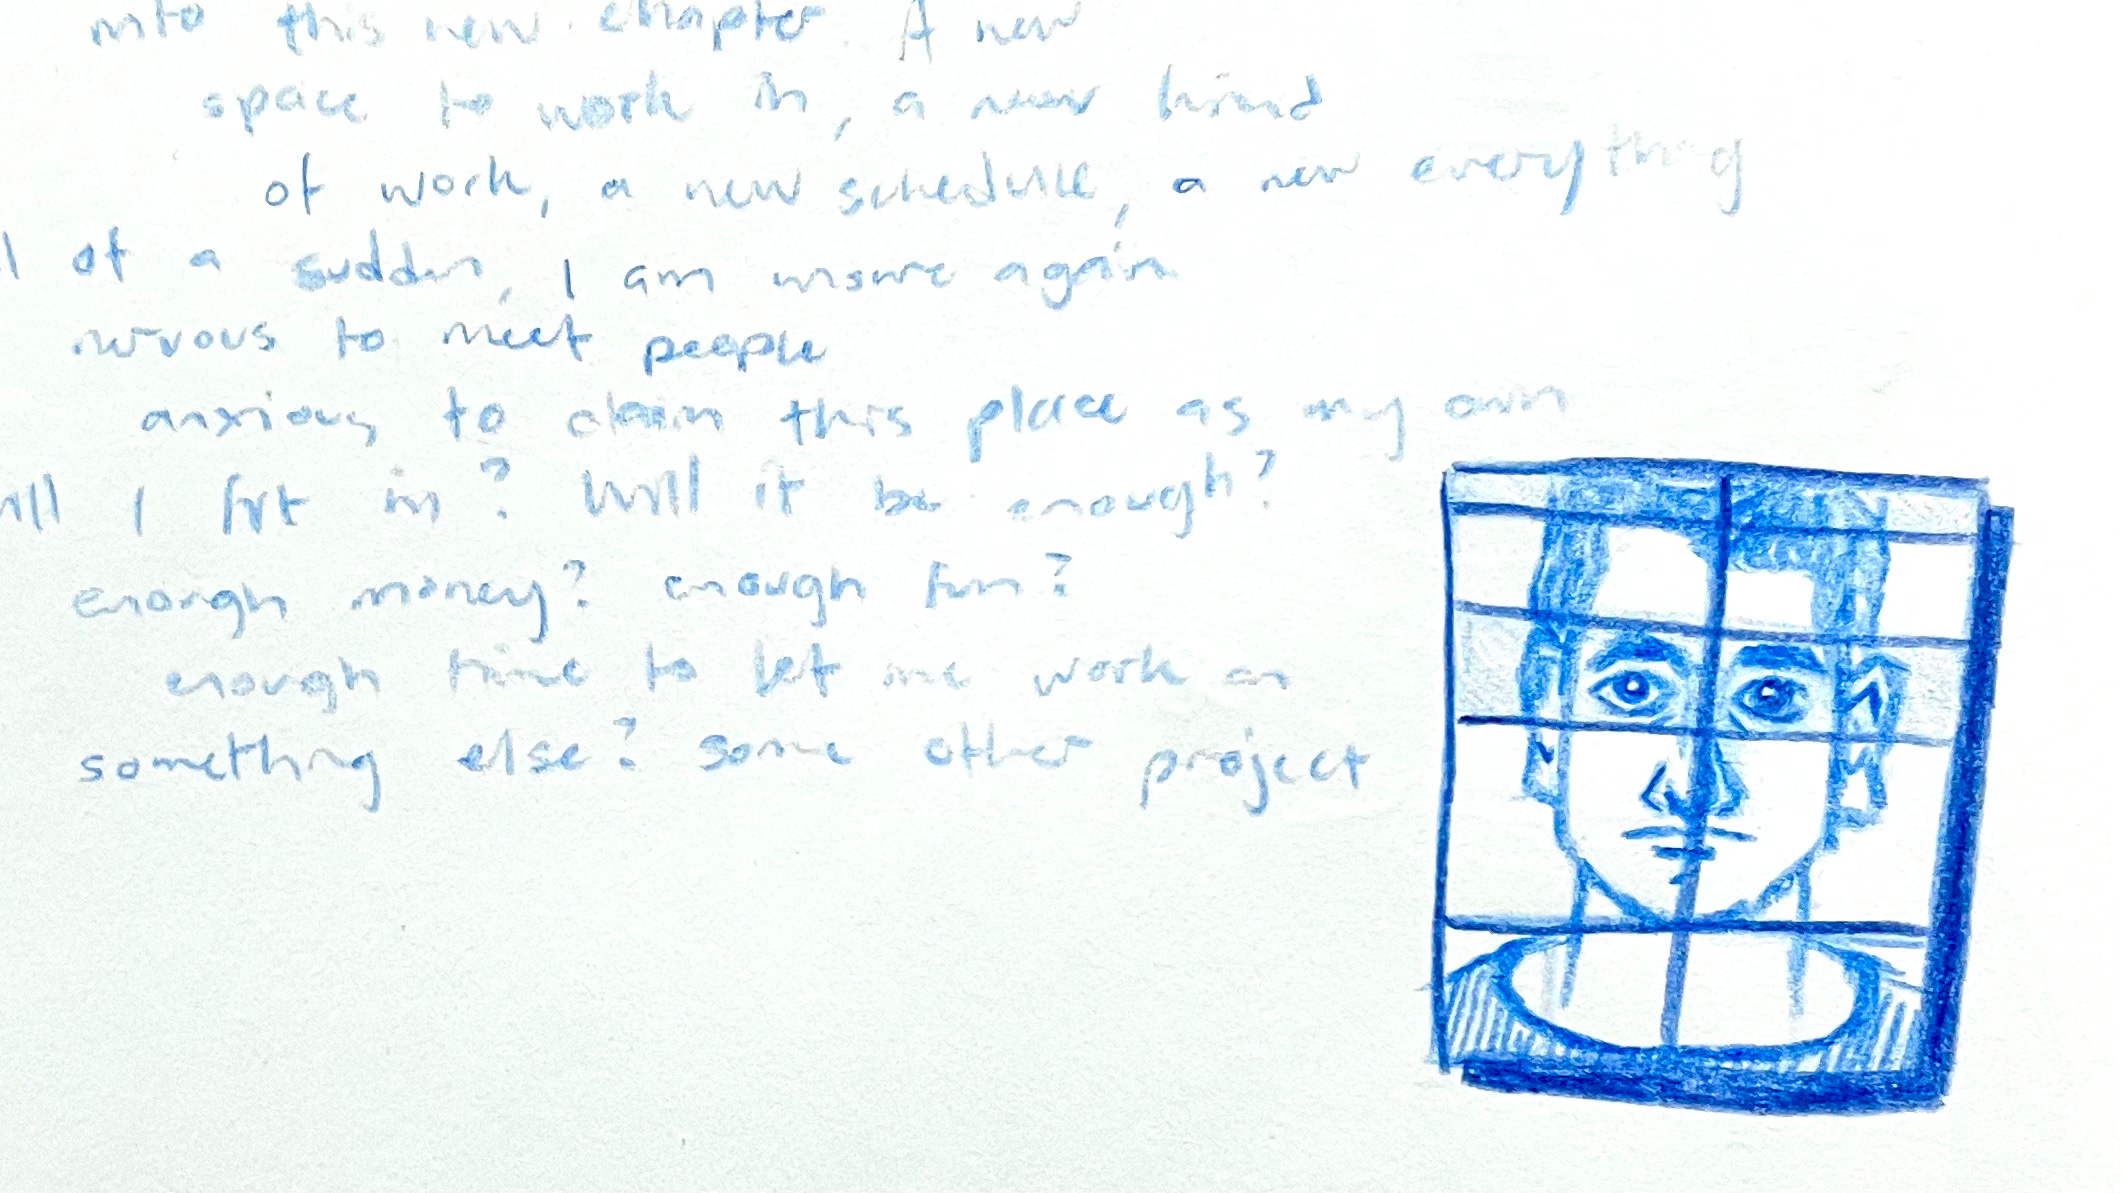 into this new chapter. A new
space to work in, a new kind
of work, a new schedule, a new everything
of a sudden, I am unsure again
nervous to meet people
anxious to claim this place as my own
will I fit in? Will it be enough?
enough money? enough fun?
enough time to let me work on
something else? some other project